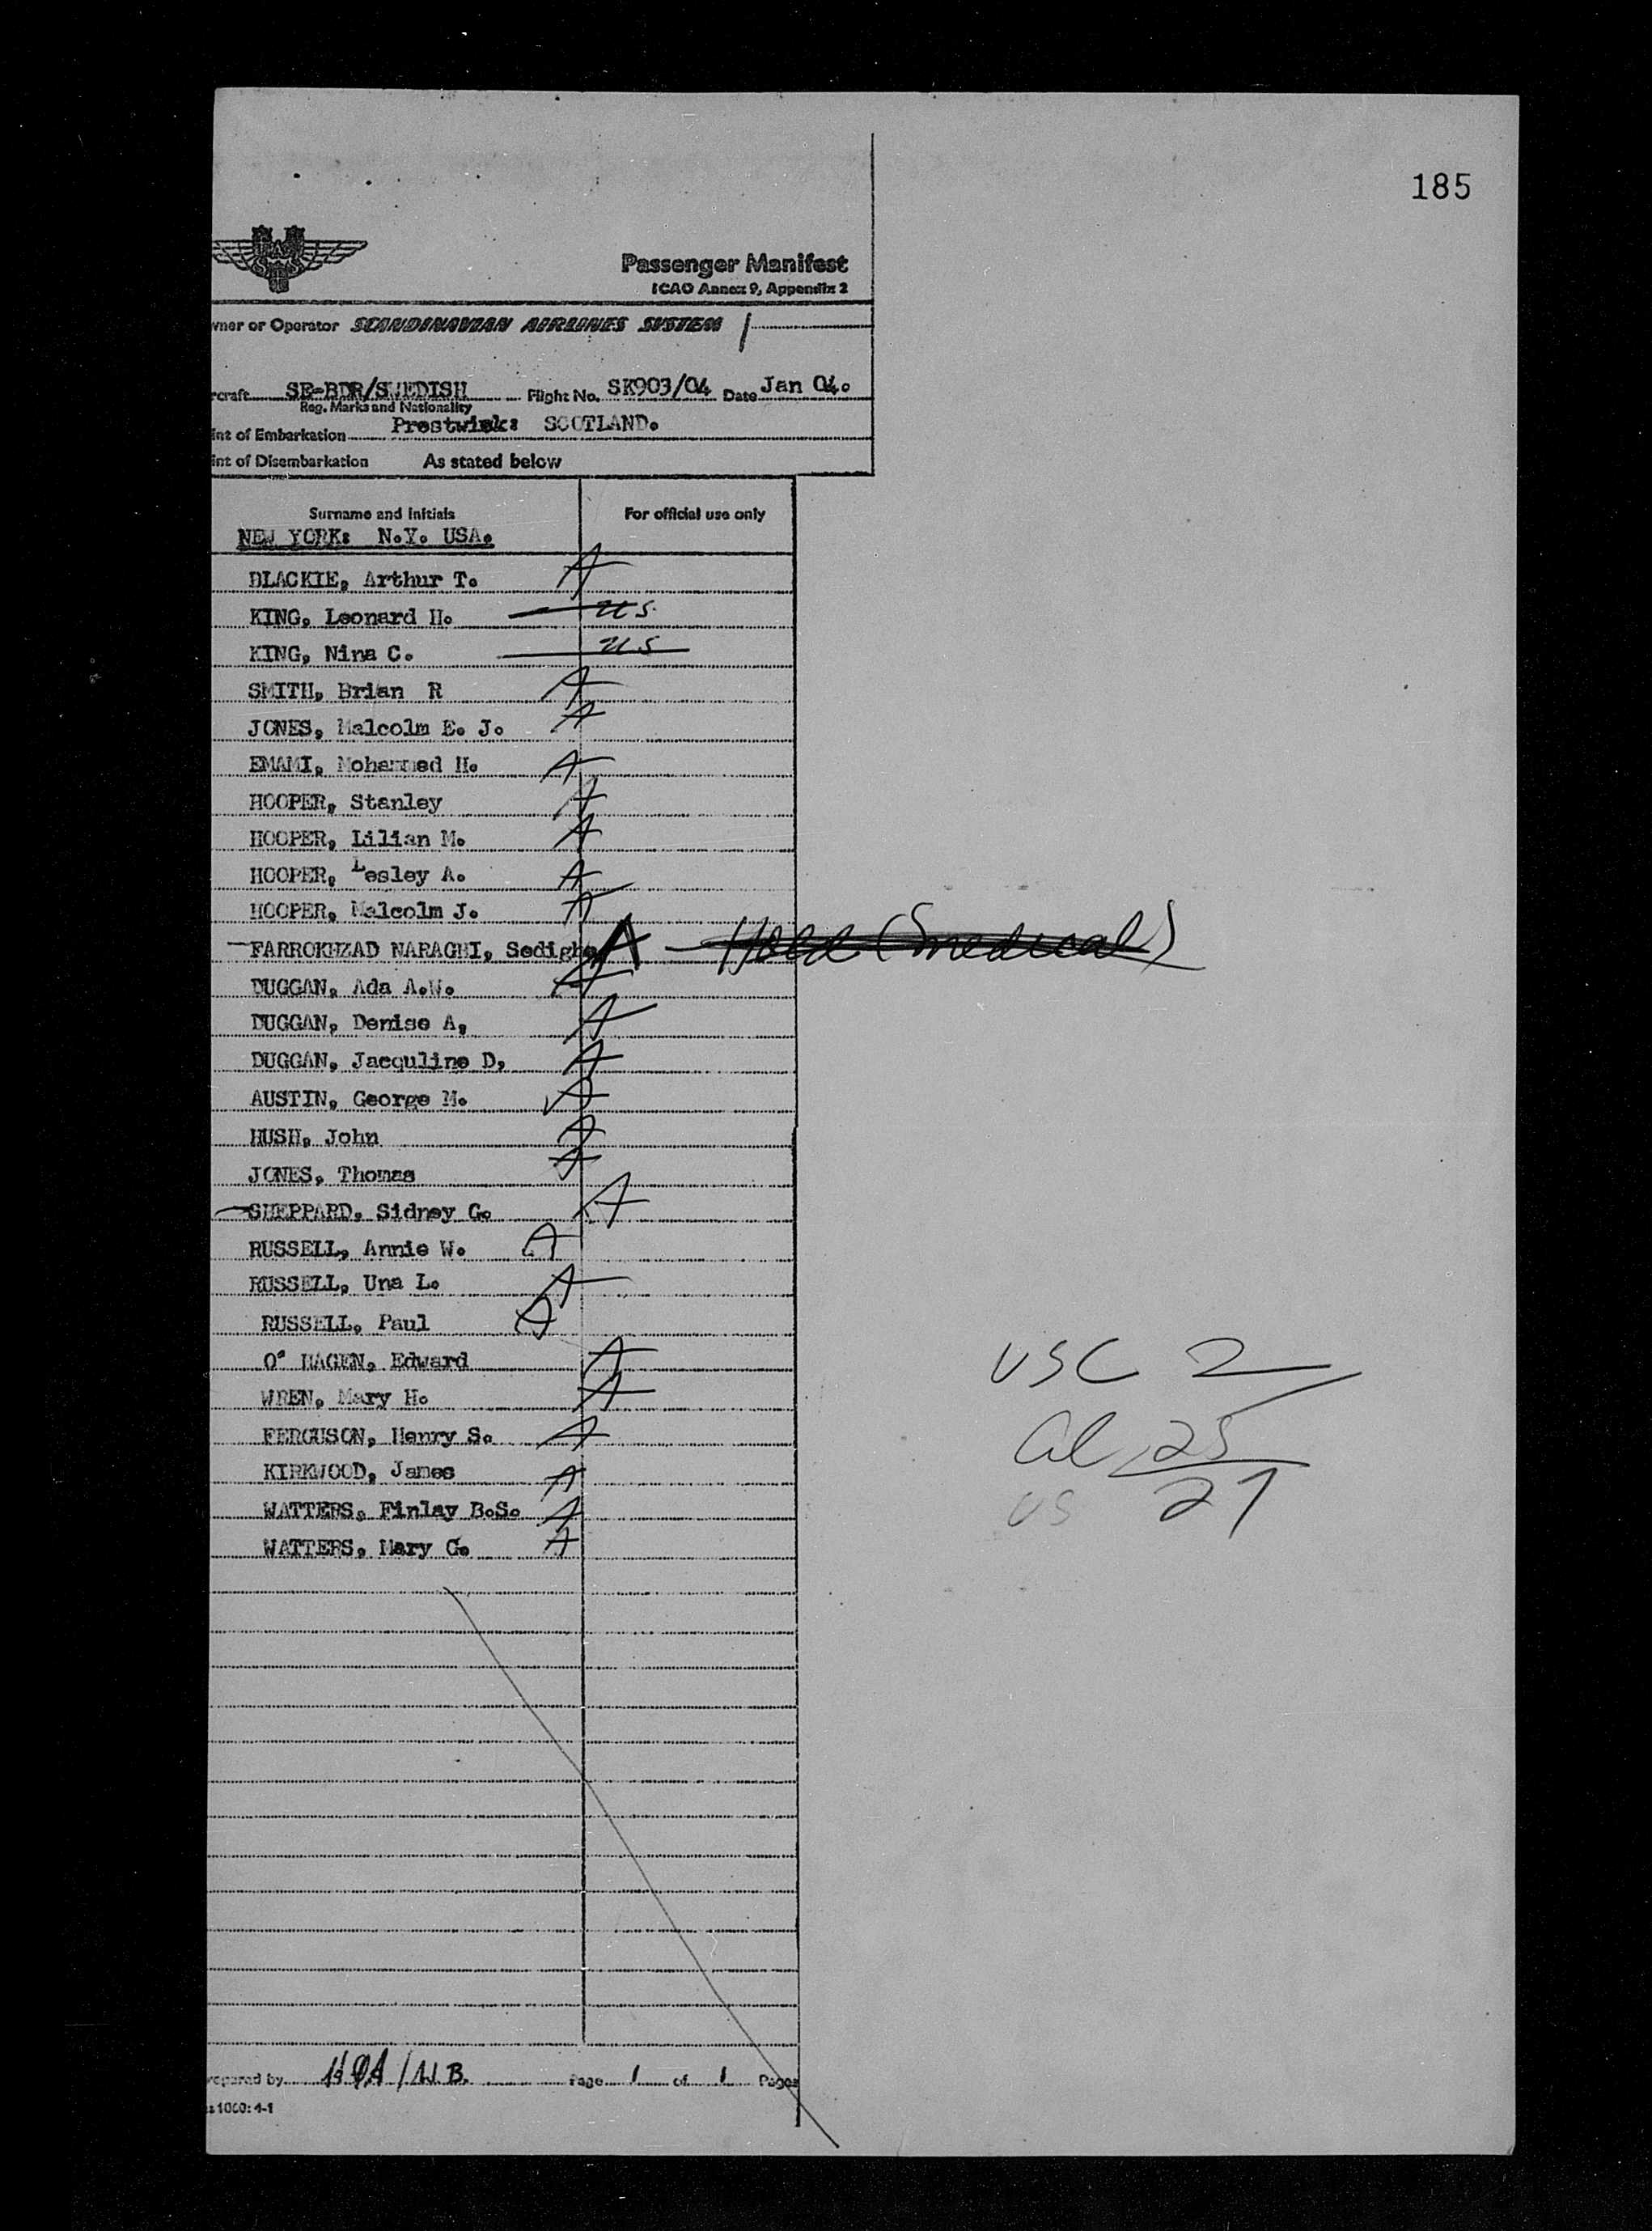 185
Passenger Manifest
ICAO Annex 9, Appendix 2
wner or Operator SCANDINAVIAN AIRLINES SYSTEM
rcraft SE-BDR/SWEDISH Flight No. SK903/04 Date Jan 04.
Reg. Marks and Nationality
int of Embarkation Prestwick: SCOTLAND.
int of Disembarkation As stated below
Surname and Initials For official use only
NEW YORK: N.Y. USA.
BLACKIE, Arthur T. A
KING, Leonard H. US
KING, Nina C. US
SMITH, Brian R A
JONES, Malcolm E. J. A
EMAMI, Mohammed H. A
HOOPER, Stanley A
HOOPER, Lilian M. A
HOOPER, Lesley A. A
HOOPER, Malcolm J. A
FARROKHZAD NARAGHI, Sedighe A - Held (medical)
DUGGAN, Ada A.W. A
DUGGAN, Denise A, A
DUGGAN, Jacquline D, A
AUSTIN, George M. A
HUSH, John A
JONES, Thomas A
SHEPPARD, Sidney G. A
RUSSELL, Annie W. A
RUSSELL, Una L. A
RUSSELL, Paul A
O' HAGEN, Edward A
WREN, Mary H. A
USC 2
FERGUSON, Henry S. A
Al 25
KIRKWOOD, James A
WATTERS, Finlay B.S. A
US 27
WATTERS, Mary G. A
repared by /W.B. Page 1 of 1 Pages
1000:4-1